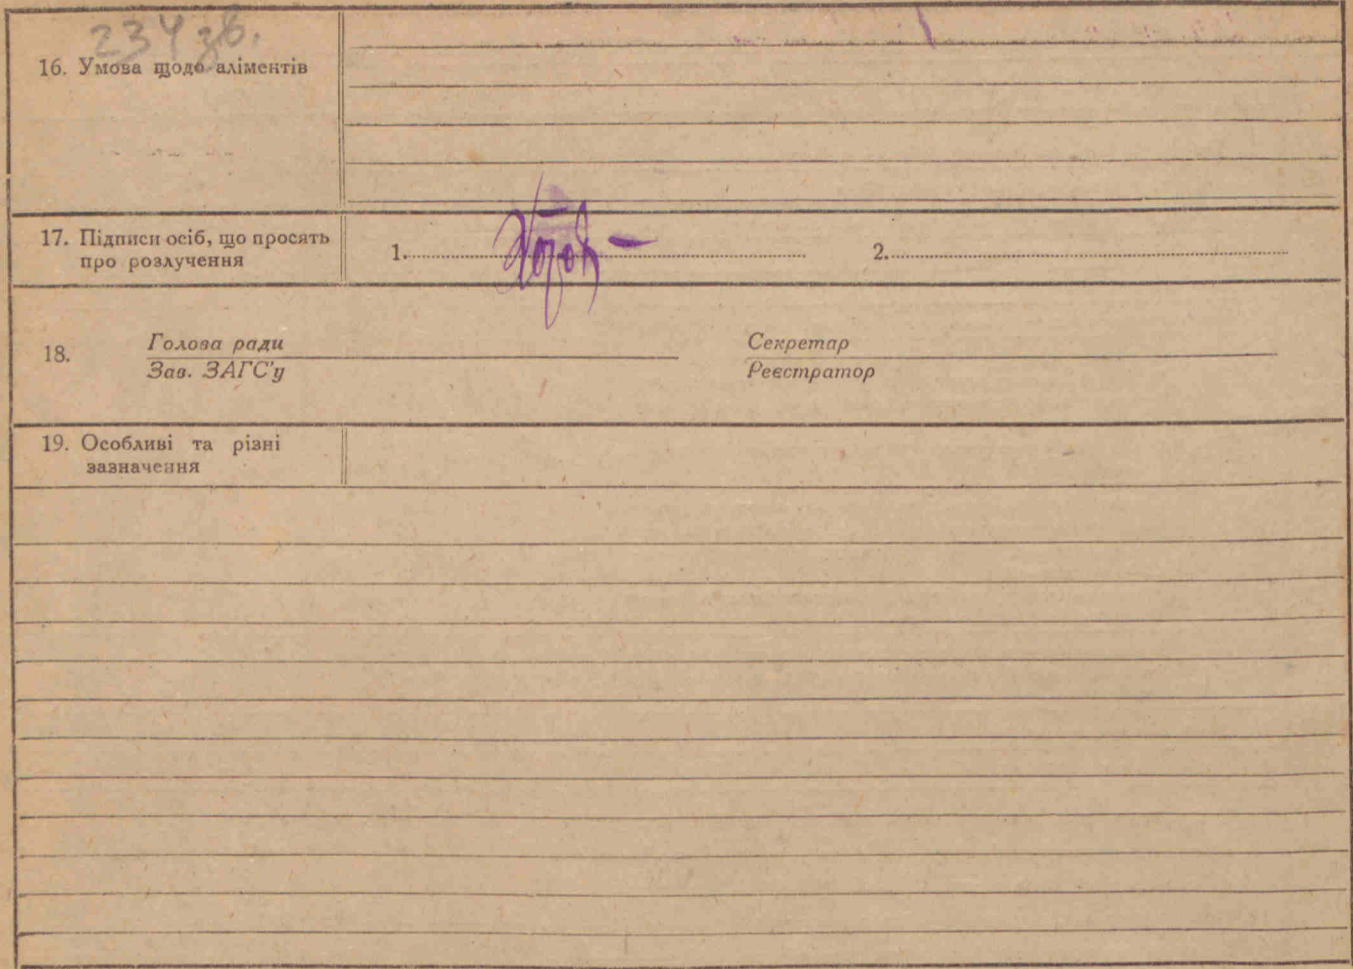 234 зв.
16. Умова щодо аліментів
17. Підписи осіб, що просять
про розлучення
1.
2.
18.
Голова ради
Зав. ЗАГС'у
Секретар
Реєстратор
19. Особливі та різні
зазначення